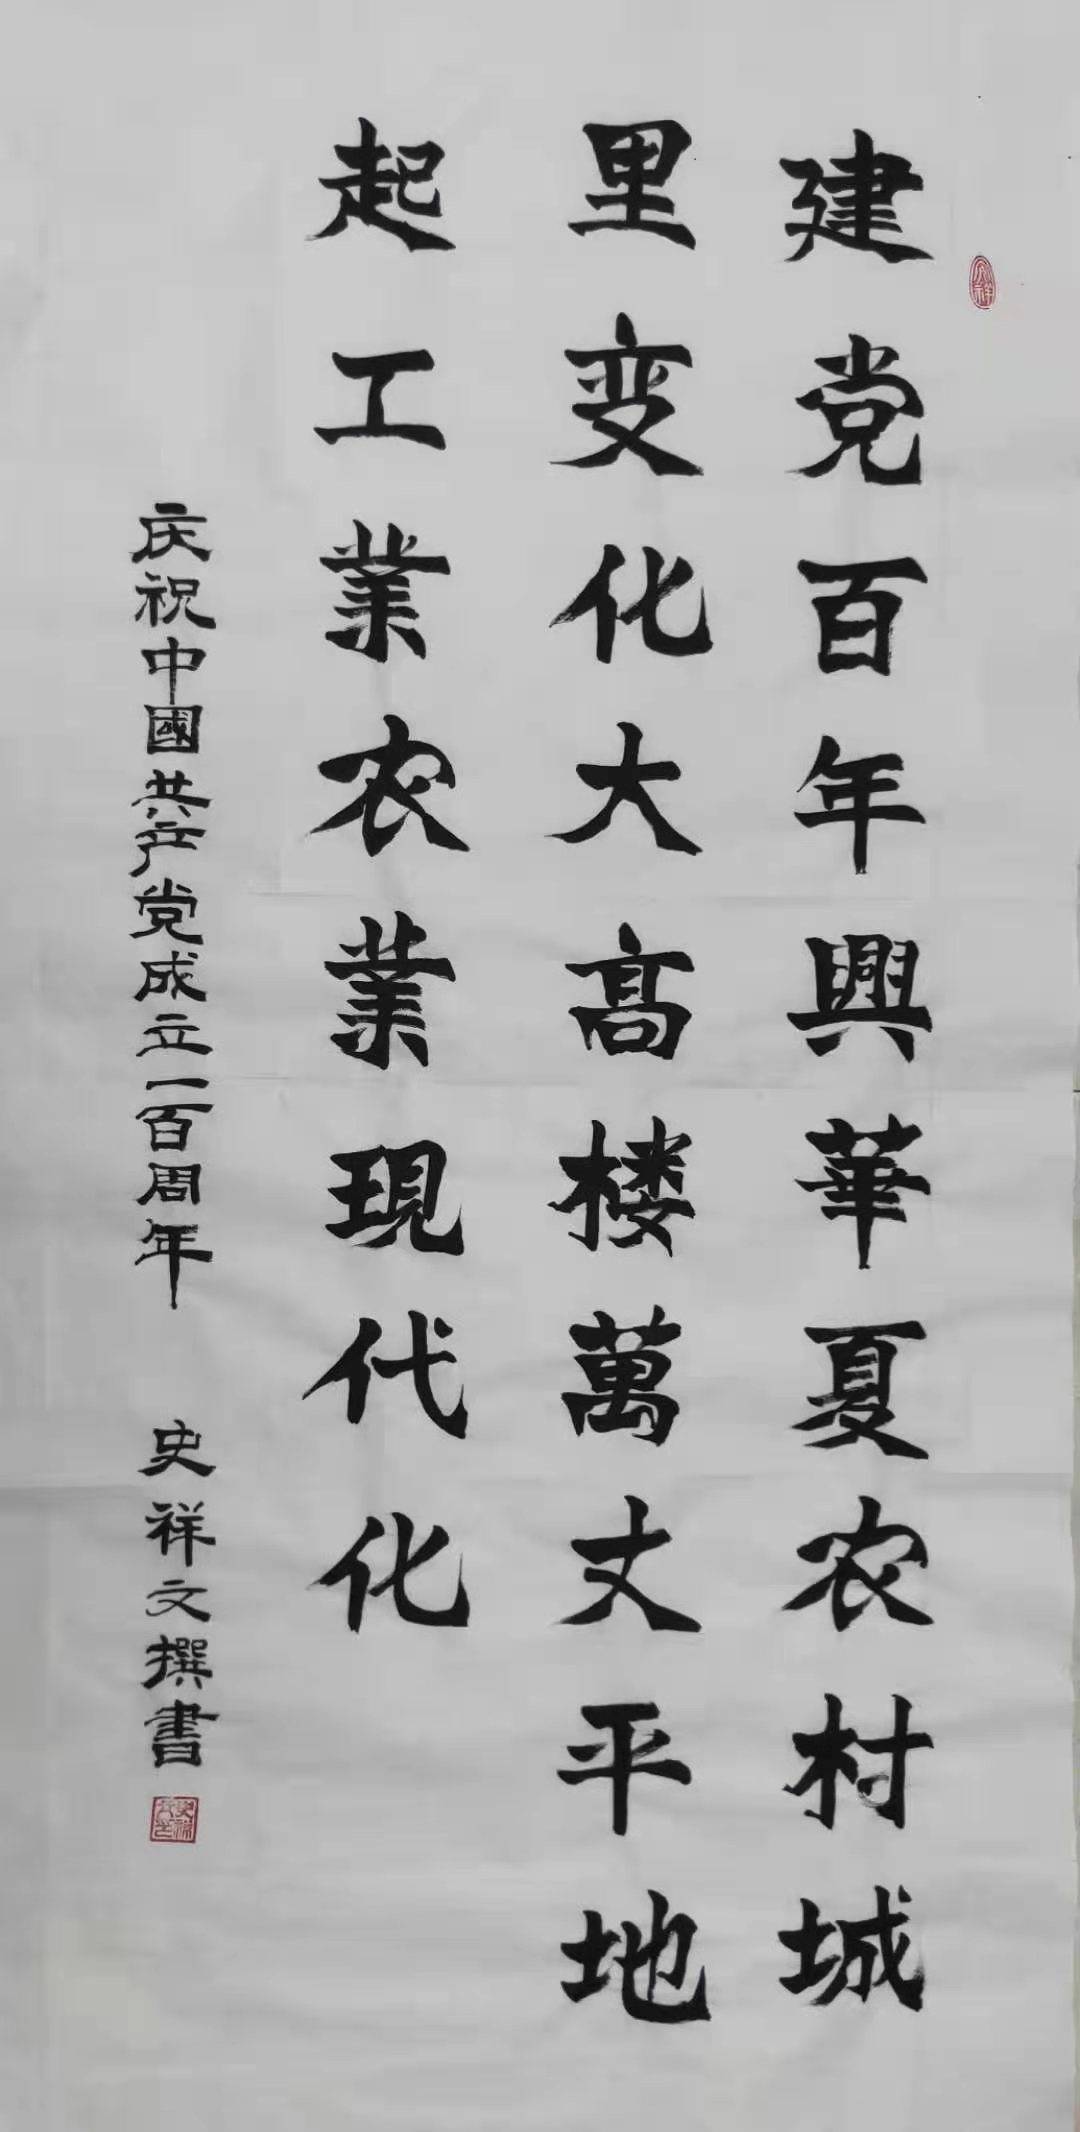 建党百年興華夏农村城
里变化大高楼萬丈平地
起工業农業現代化
庆祝中國共产党成立一百周年 史祥文撰書